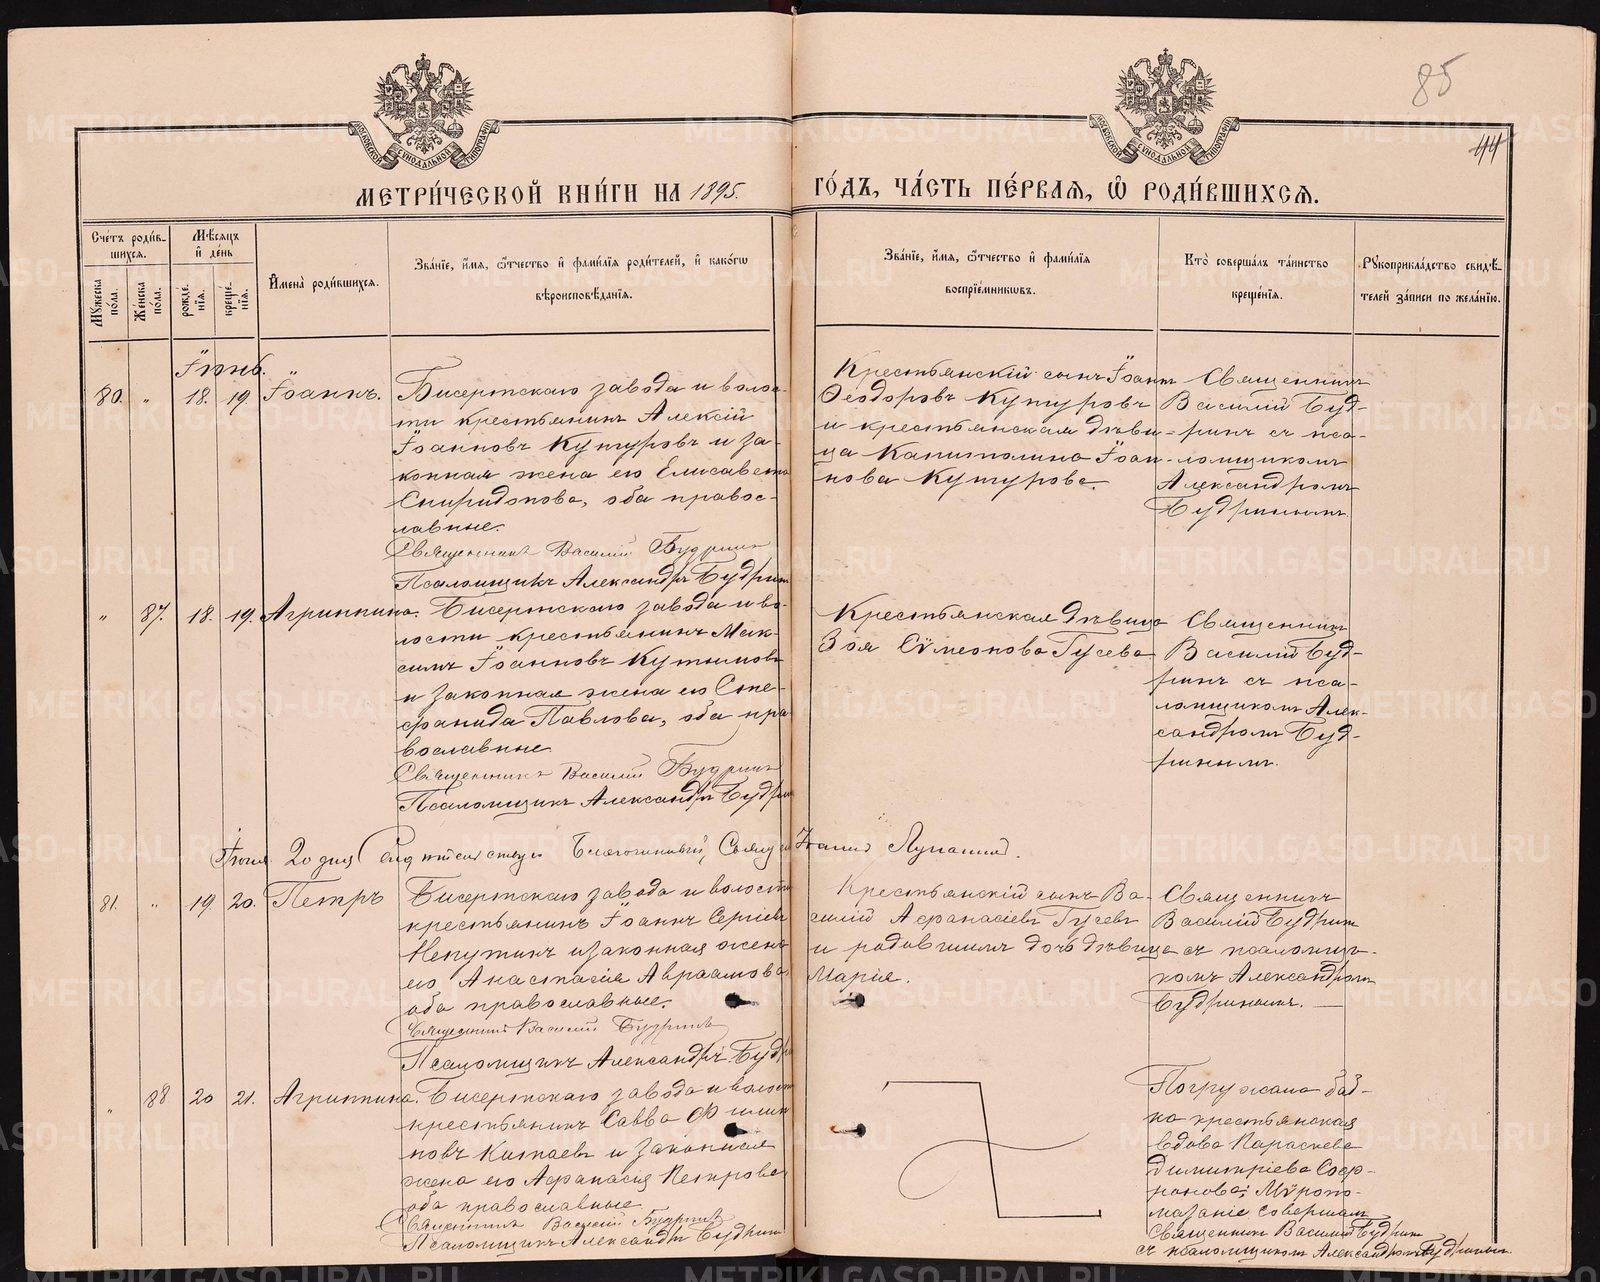 85
44
МОСКОВСКОЙ СѴНОДАЛЬНОЙ ТИПОГРАФІИ
МОСКОВСКОЙ СѴНОДАЛЬНОЙ ТИПОГРАФІИ
МЕТРИ́ЧЕСКОЙ КНИ́ГИ НА 1895. ГО́ДЪ, ЧА́СТЬ ПЕ́РВАЯ, Ѿ РОДИ́ВШИХСЯ.
Сче́тъ роди́в-
шихся.
Мѣ́сяцъ
и҆ де́нь
Мꙋжеска
по́ла.
Же́нска
по́ла.
рожде́-
нїя.
креще́-
нїя.
И҆мена̀ роди́вшихся.
Зва́нїе, и҆́мя, ѻ҆́тчество и҆ фами́лїя роди́телей, и҆ како́гѡ
вѣроисповѣ́данїя.
Зва́нїе, и҆́мя, ѻ҆́тчество и҆ фами́лїя
воспрїе́мникѡвъ.
Кто̀ соверша́лъ та́инство
креще́нїя.
Рꙋкоприкла́дство свидѣ́-
телей за́писи по жела́нїю.
Іюнь.
80. " 18. 19. Іоаннъ.
Бисертскаго завода и волос-
ти крестьянинъ Алексій
Іоанновъ Кутуровъ и за-
конная жена его Елисавета
Спиридонова, оба правос-
лавные.
Священникъ Василій Будринъ
Псаломщикъ Александръ Будринъ
Крестьянскій сынъ Іоаннъ
Ѳеодоровъ Кутуровъ
и крестьянская дѣви-
ца Капитолина Іоан-
нова Кутурова.
Священникъ
Василій Буд-
ринъ съ пса-
ломщикомъ
Александромъ
Будринымъ.
" 87. 18. 19. Агриппина.
Бисертскаго завода и во-
лости крестьянинъ Мак-
симъ Іоанновъ Кутымовъ
и законная жена его Сте-
фанида Павлова, оба пра
вославные
Священникъ Василій Будринъ
Псаломщикъ Александръ Будрин
Крестьянская дѣвица
Зоя Сѵмеонова Гусева
Священникъ
Василій Буд-
ринъ съ пса-
ломщикомъ Алек-
сандромъ Буд-
ринымъ.
Іюня 20 дня Благочинный, Свящ. Іоаннъ
81. " 19 20. Петръ
Бисертскаго завода и волости
крестьянинъ Іоаннъ Сергіевъ
Непутинъ и законная жена
его Анастасія Авраамова
оба православные.
Священникъ Василій Будринъ
Псаломщикъ Александръ Будр
Крестьянскій сынъ Ва-
силій Аѳанасіевъ Гусевъ
и родовшимъ дочь дѣвица
Марія.
Священникъ
Василій Будринъ
съ псаломщи-
комъ Александромъ
Будринымъ.
" 88 20 21. Агриппина.
Бисертскаго завода и волост
крестьянинъ Савва Филип
повъ Китаевъ и законная
жена его Аѳанасія Петрова
оба православные
Священникъ Василій Будринъ
Псаломщикъ Александръ Будрин
Погружала баб-
ка крестьянская
вдова Параскева
Димитріева Соф-
ронова; Мѵропо-
мазаніе совершалъ
Священникъ Василій Будринъ
съ псаломщикомъ Александромъ Будринымъ.
METRIKI.GASO-URAL.RU